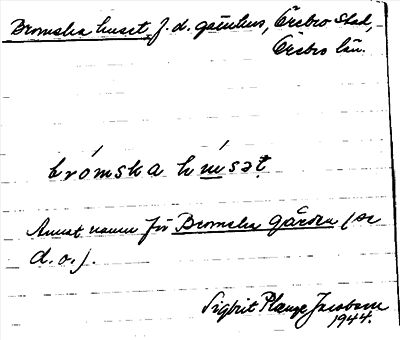 Bromska huset, f. d. gästhus, Örebro stad,
Örebro län.
brómska húsət
Annat namn för Bromska gården (se
d. o.).
Sigbrit Plange Jacobson
1944.